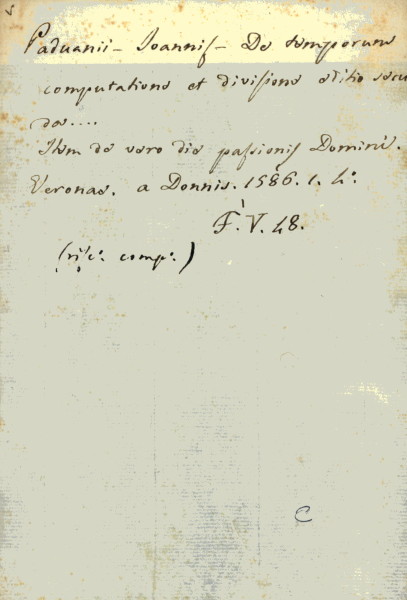 Paduanii - Joannis - De temporum
computatione et divisione editio secu
da....
Item de vero die passionis Domini.
Veronae. a Donnis. 1586. 1. 4:
F. V. 48.
(ric: comp:)
C